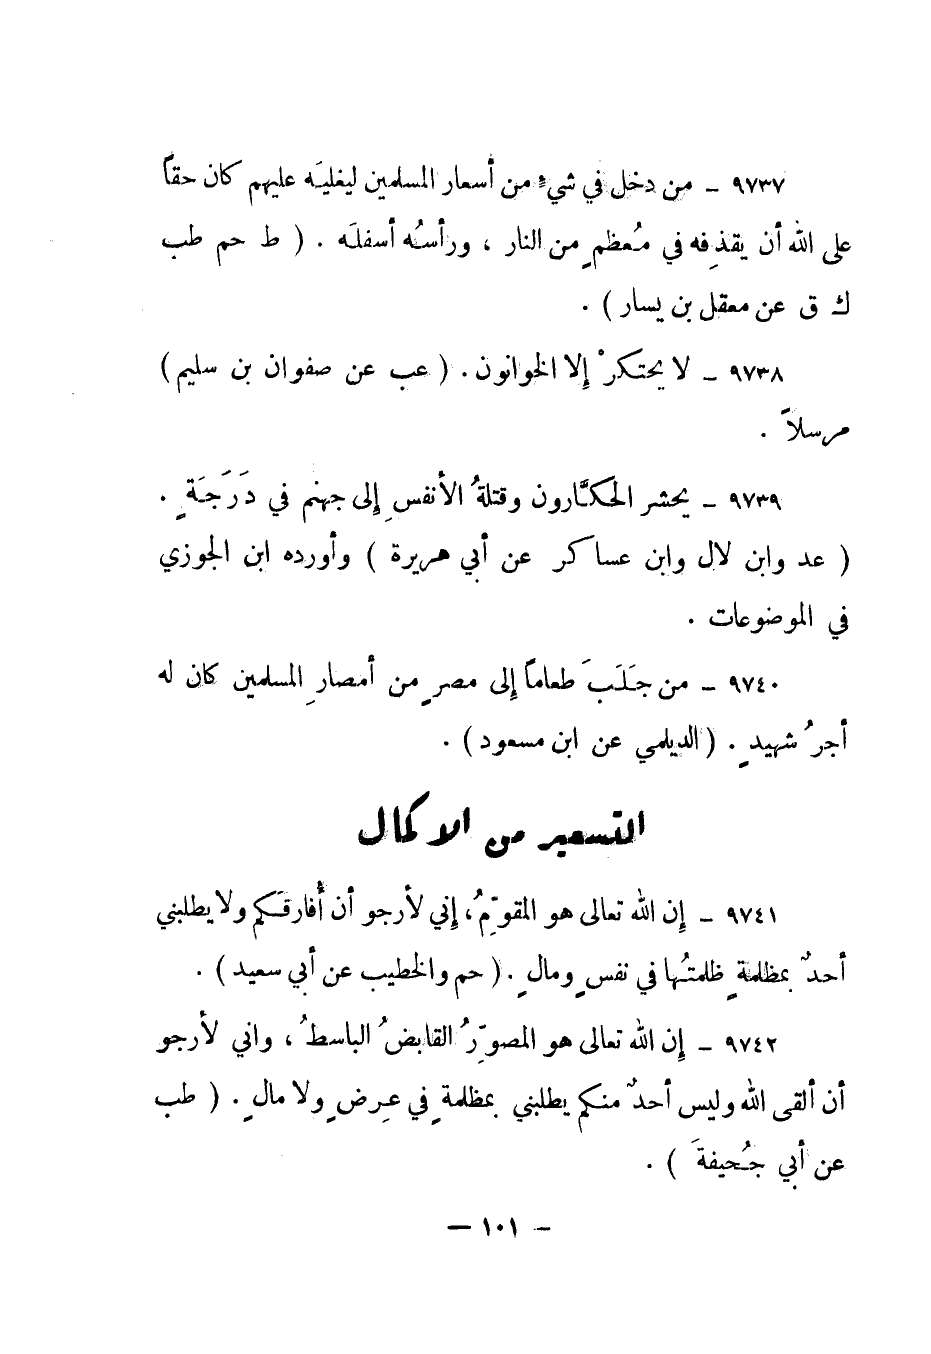 ٩٧٣٧ - من دخل في شيءٍ من أسعار المسلمين ليغليَه عليهم كان حقاً
على الله أن يقذفِه في مُعظمٍ من النار ، ورأسُه أسفلَه . ( ط حم طب
ك ق عن معقل بن يسار ) .
٩٧٣٨ - لا يحتكرْ إلا الخوانون . ( عب عن صفوان بن سليم )
مرسلاً .
٩٧٣٩ - يحشر الحكَّارون وقتلةُ الأنفسِ إلى جهنم في دَرَجَةٍ .
( عد وابن لال وابن عساكر عن أبي هريرة ) وأورده ابن الجوزي
في الموضوعات .
٩٧٤٠ - من جَلَبَ طعاماً إلى مصرٍ من أمصارِ المسلمين كان له
أجرُ شهيدٍ . ( الديلمي عن ابن مسعود ) .
التسعير من الاكمال
٩٧٤١ - إن الله تعالى هو المقوِّمُ ، إني لأرجو أن أُفارقَكم ولا يطلبني
أحدٌ بمظلمةٍ ظلمتُها في نفسٍ ومالٍ . ( حم والخطيب عن أبي سعيد ) .
٩٧٤٢ - إن الله تعالى هو المصوِّرُ القابضُ الباسطُ ، واني لأرجو
أن ألقى الله وليس أحدٌ منكم يطلبني بمظلمةٍ في عِرضٍ ولا مالٍ . ( طب
عن أبي جُحيفةَ ) .
- ١٠١ -